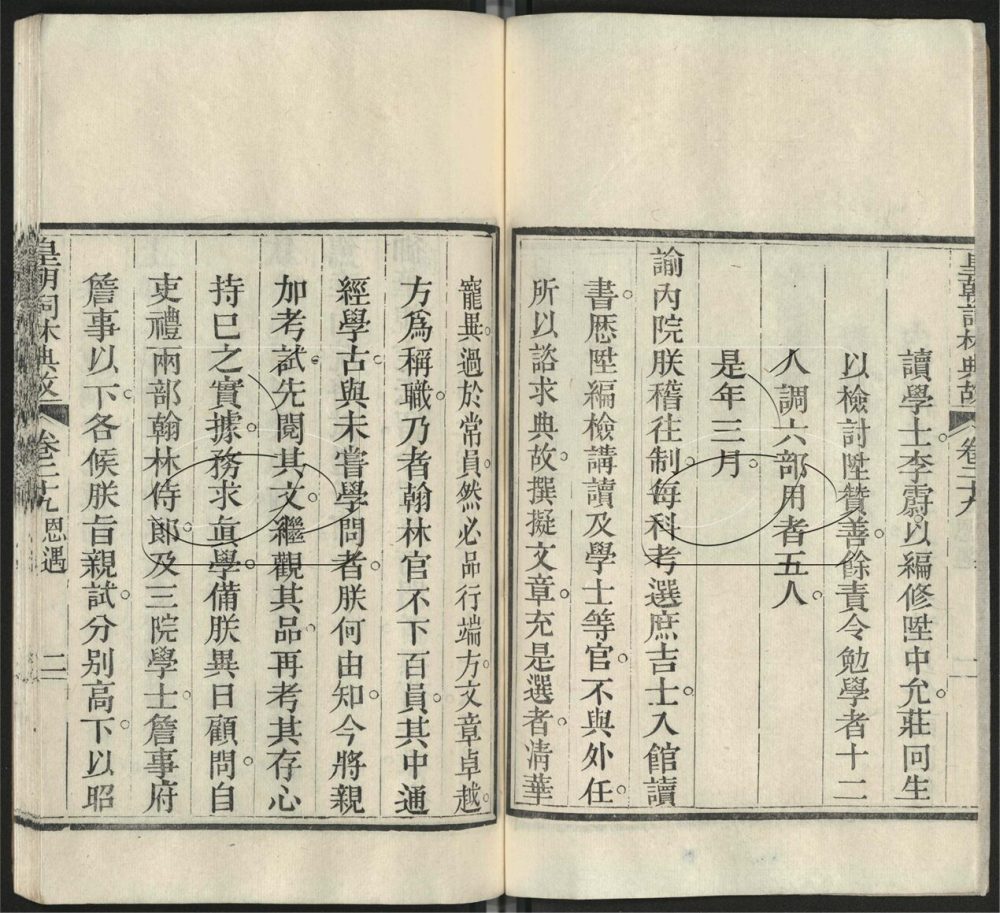 皇朝詞林典故 卷二十九
讀學士李霨以編修陞中允莊冋生
以檢討陞贊善餘責令勉學者十二
人調六部用者五人
是年三月
諭內院朕稽往制每科考選庶吉士入館讀
書歷陞編檢講讀及學士等官不與外任
所以諮求典故撰擬文章充是選者清華
寵異過於常員然必品行端方文章卓越
方爲稱職乃者翰林官不下百員其中通
經學古與未嘗學問者朕何由知今將親
加考試先閱其文繼觀其品再考其存心
持已之實據務求眞學備朕異日顧問自
吏禮兩部翰林侍郞及三院學士詹事府
詹事以下各候朕旨親試分別高下以昭
皇朝詞林典故 卷二十九 恩遇 二